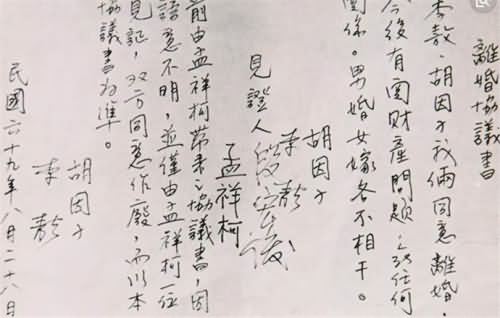 離婚協議書
李敖、胡因子我倆同意離婚。
今後有関財產問題,任何
関係。男婚女嫁各不相干。
胡因子
李敖
見證人
孟祥柯
前由孟祥柯帶來之協議書,因
語意不明,並僅由孟祥柯一位
見証,双方同意作廢,而以本
協議書為準。
胡因子
李敖
民國六十九年八月二十八日